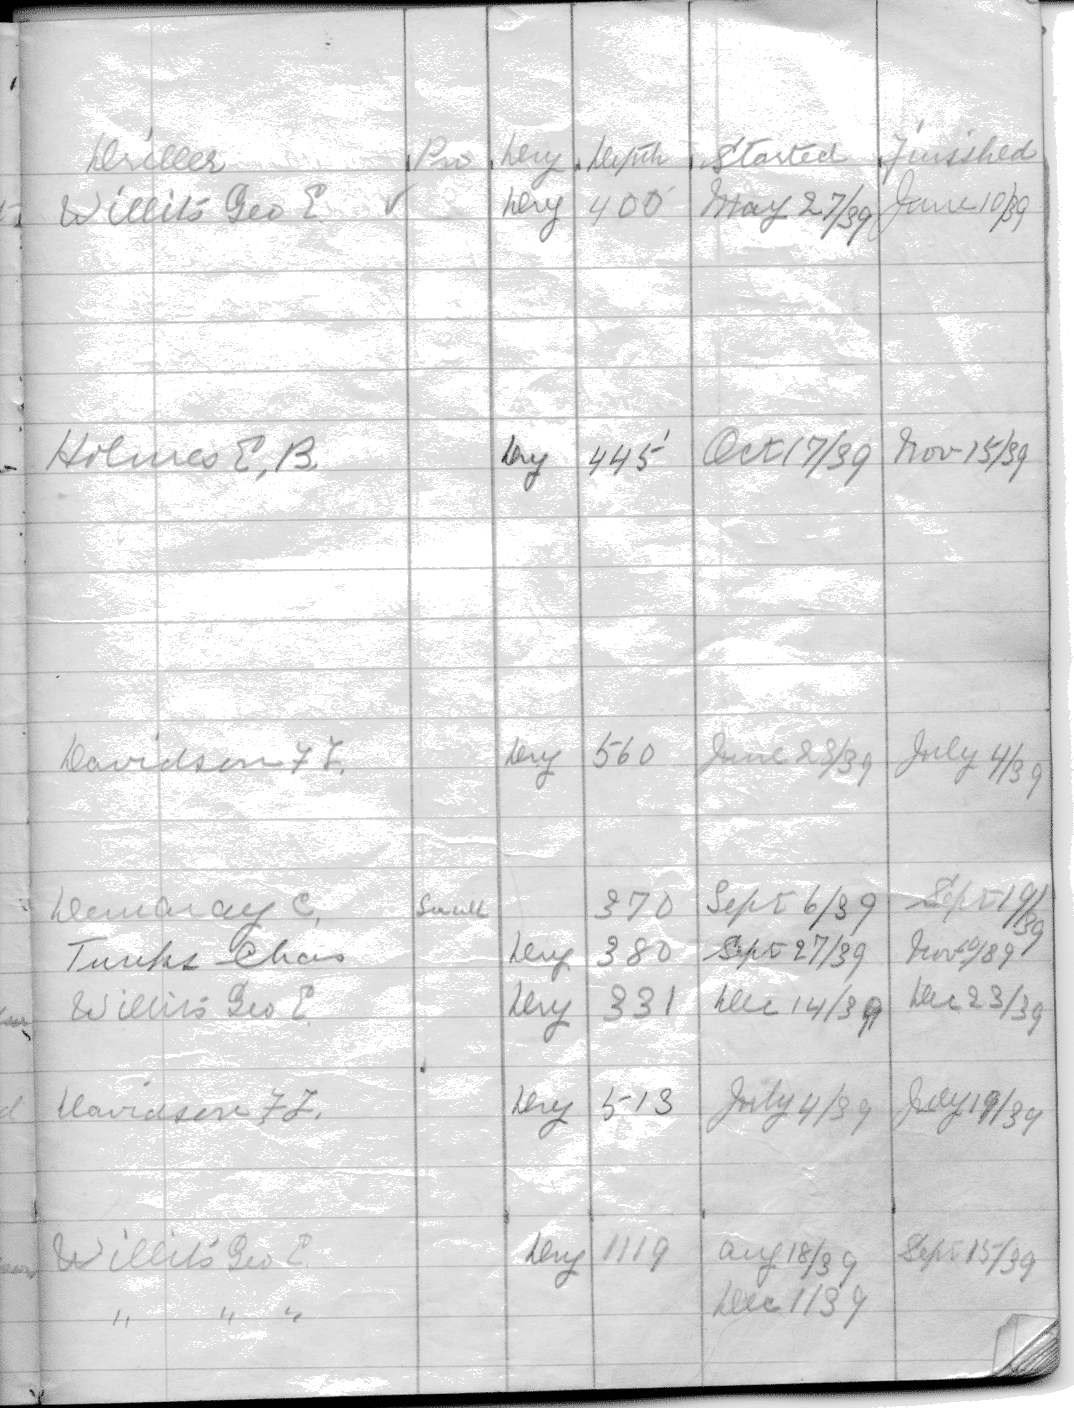 Driller Pro Dry Depth Started Finished
Willits Geo E ✓ Dry 400' May 27/39 June 10/39
Holmes E, B. Dry 445' Oct 17/39 Nov 15/39
Davidson F F. Dry 560 June 23/39 July 4/39
Demaray C. Small 370 Sept 6/39 Sept 19/39
Tunks Chas Dry 380 Sept 27/39 Nov /39
Willits Geo E Dry 331 Dec 14/39 Dec 23/39
Davidson F F. Dry 513 July 4/39 July 19/39
Willits Geo E Dry 1119 Aug 18/39 Sept 15/39
" " " Dec 1139